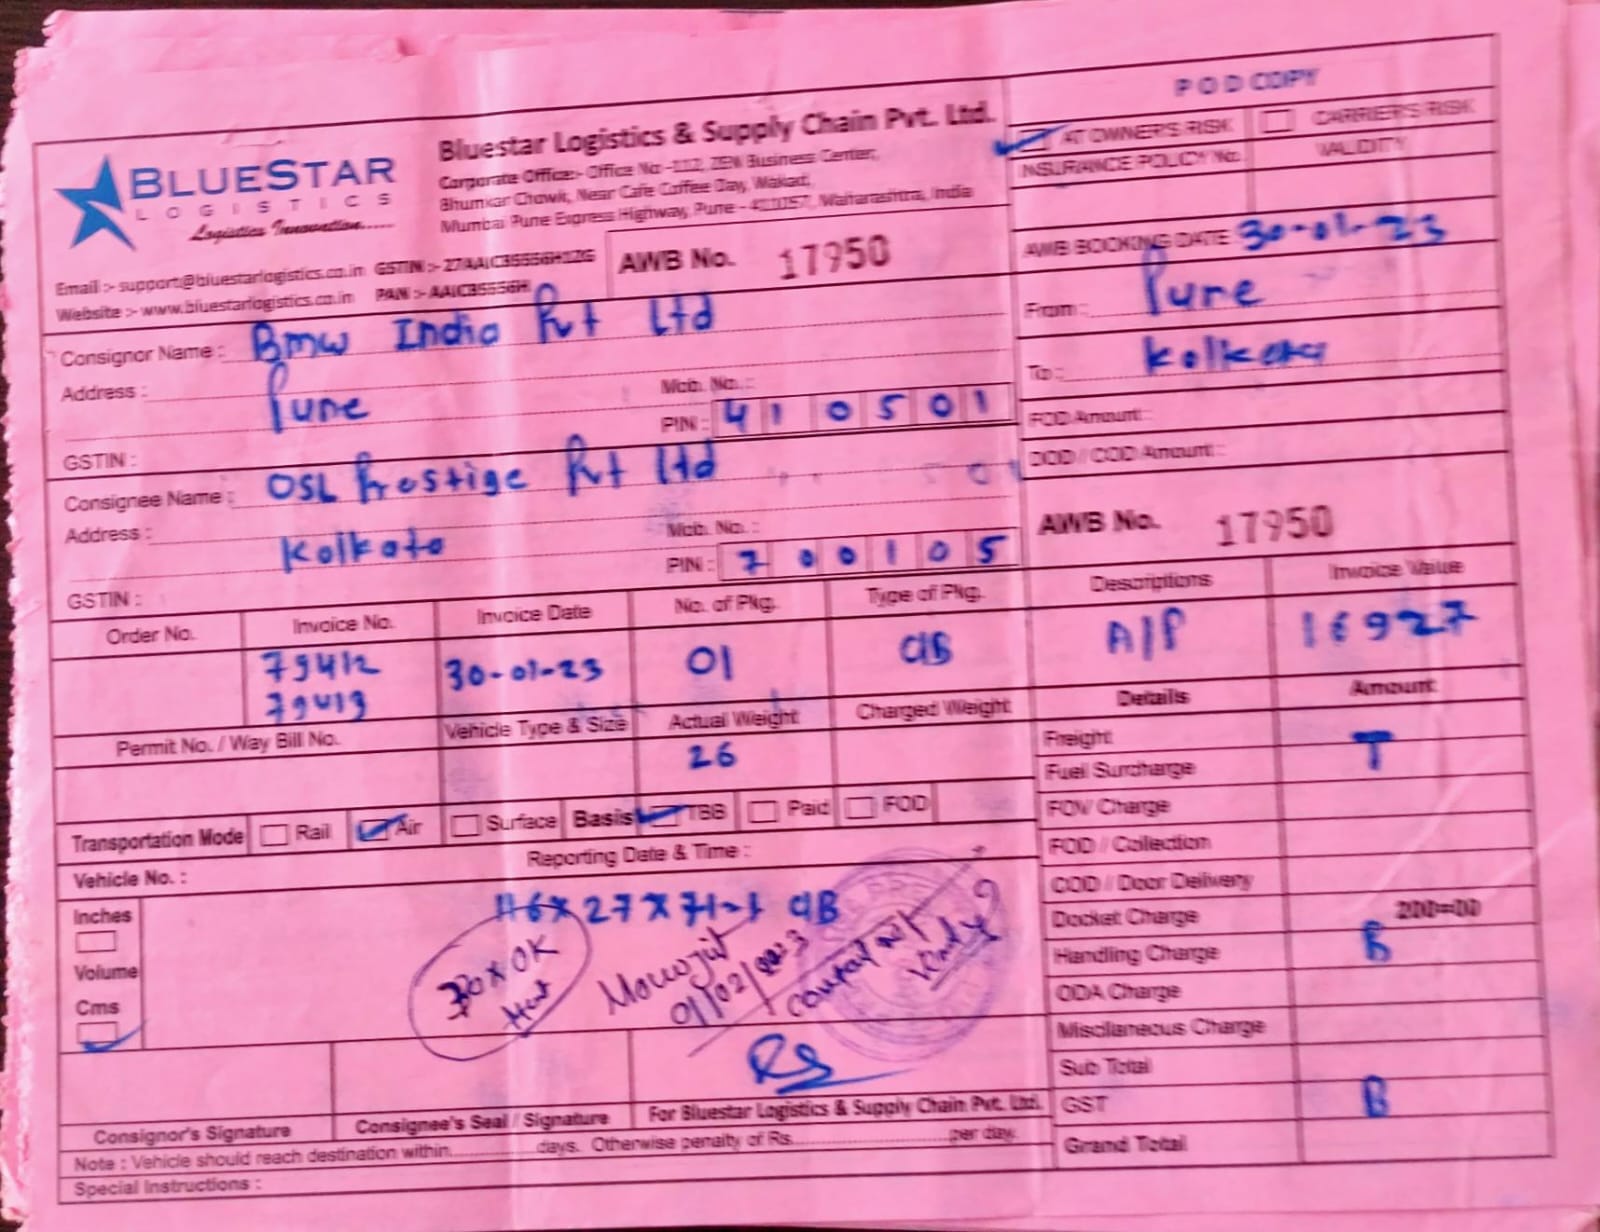 POD COPY
BLUESTAR
LOGISTICS
Logistics Innovation.....
Bluestar Logistics & Supply Chain Pvt. Ltd.
Corporate Office:- Office No -112, ZEN Business Center,
Bhumkar Chowk, Near Cafe Coffee Day, Wakad,
Mumbai Pune Express Highway, Pune - 411057, Maharashtra, India
AT OWNER'S RISK CARRIER'S RISK
INSURANCE POLICY No. VALIDITY
Email :- support@bluestarlogistics.co.in GSTIN :- 27AAICB5556H1ZG
Website :- www.bluestarlogistics.co.in PAN :- AAICB5556H
AWB No. 17950
AWB BOOKING DATE 30-01-23
From : Pune
To : Kolkata
Consignor Name : Bmw India Pvt Ltd
Address : Pune
Mob. No. :
PIN : 410501
GSTIN :
FOD Amount :
DOD / COD Amount :
Consignee Name : OSL Prestige Pvt Ltd
Address : Kolkata
Mob. No. :
PIN : 700105
GSTIN :
AWB No. 17950
Order No. Invoice No. Invoice Date No. of Pkg. Type of Pkg. Descriptions Invoice Value
79412 30-01-23 01 CB A/P 16927
79413
Permit No. / Way Bill No. Vehicle Type & Size Actual Weight Charged Weight
26
Details Amount
Freight T
Fuel Surcharge
FOV Charge
FOD / Collection
COD / Door Delivery
Docket Charge 200=00
Handling Charge B
ODA Charge
Miscllaneous Charge
Sub Total
GST B
Grand Total
Transportation Mode Rail Air Surface Basis TBB Paid FOD
Vehicle No. : Reporting Date & Time :
Inches
Volume
Cms
116x27x71-1 CB
OK
01/02/2023
Consignor's Signature Consignee's Seal / Signature For Bluestar Logistics & Supply Chain Pvt. Ltd.
Note : Vehicle should reach destination within..............days. Otherwise penalty of Rs..........................per day.
Special Instructions :